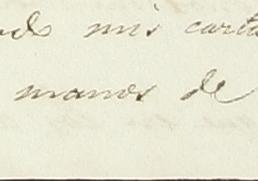 mis carta
manos de